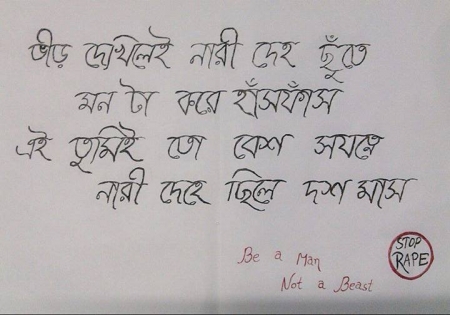 ভীড় দেখিলেই নারী দেহ ছুঁতে
মন টা করে হাঁসফাঁস
এই তুমিই তো বেশ সযত্নে
নারী দেহে ছিলে দশ মাস
Be a Man
Not a Beast
STOP
RAPE